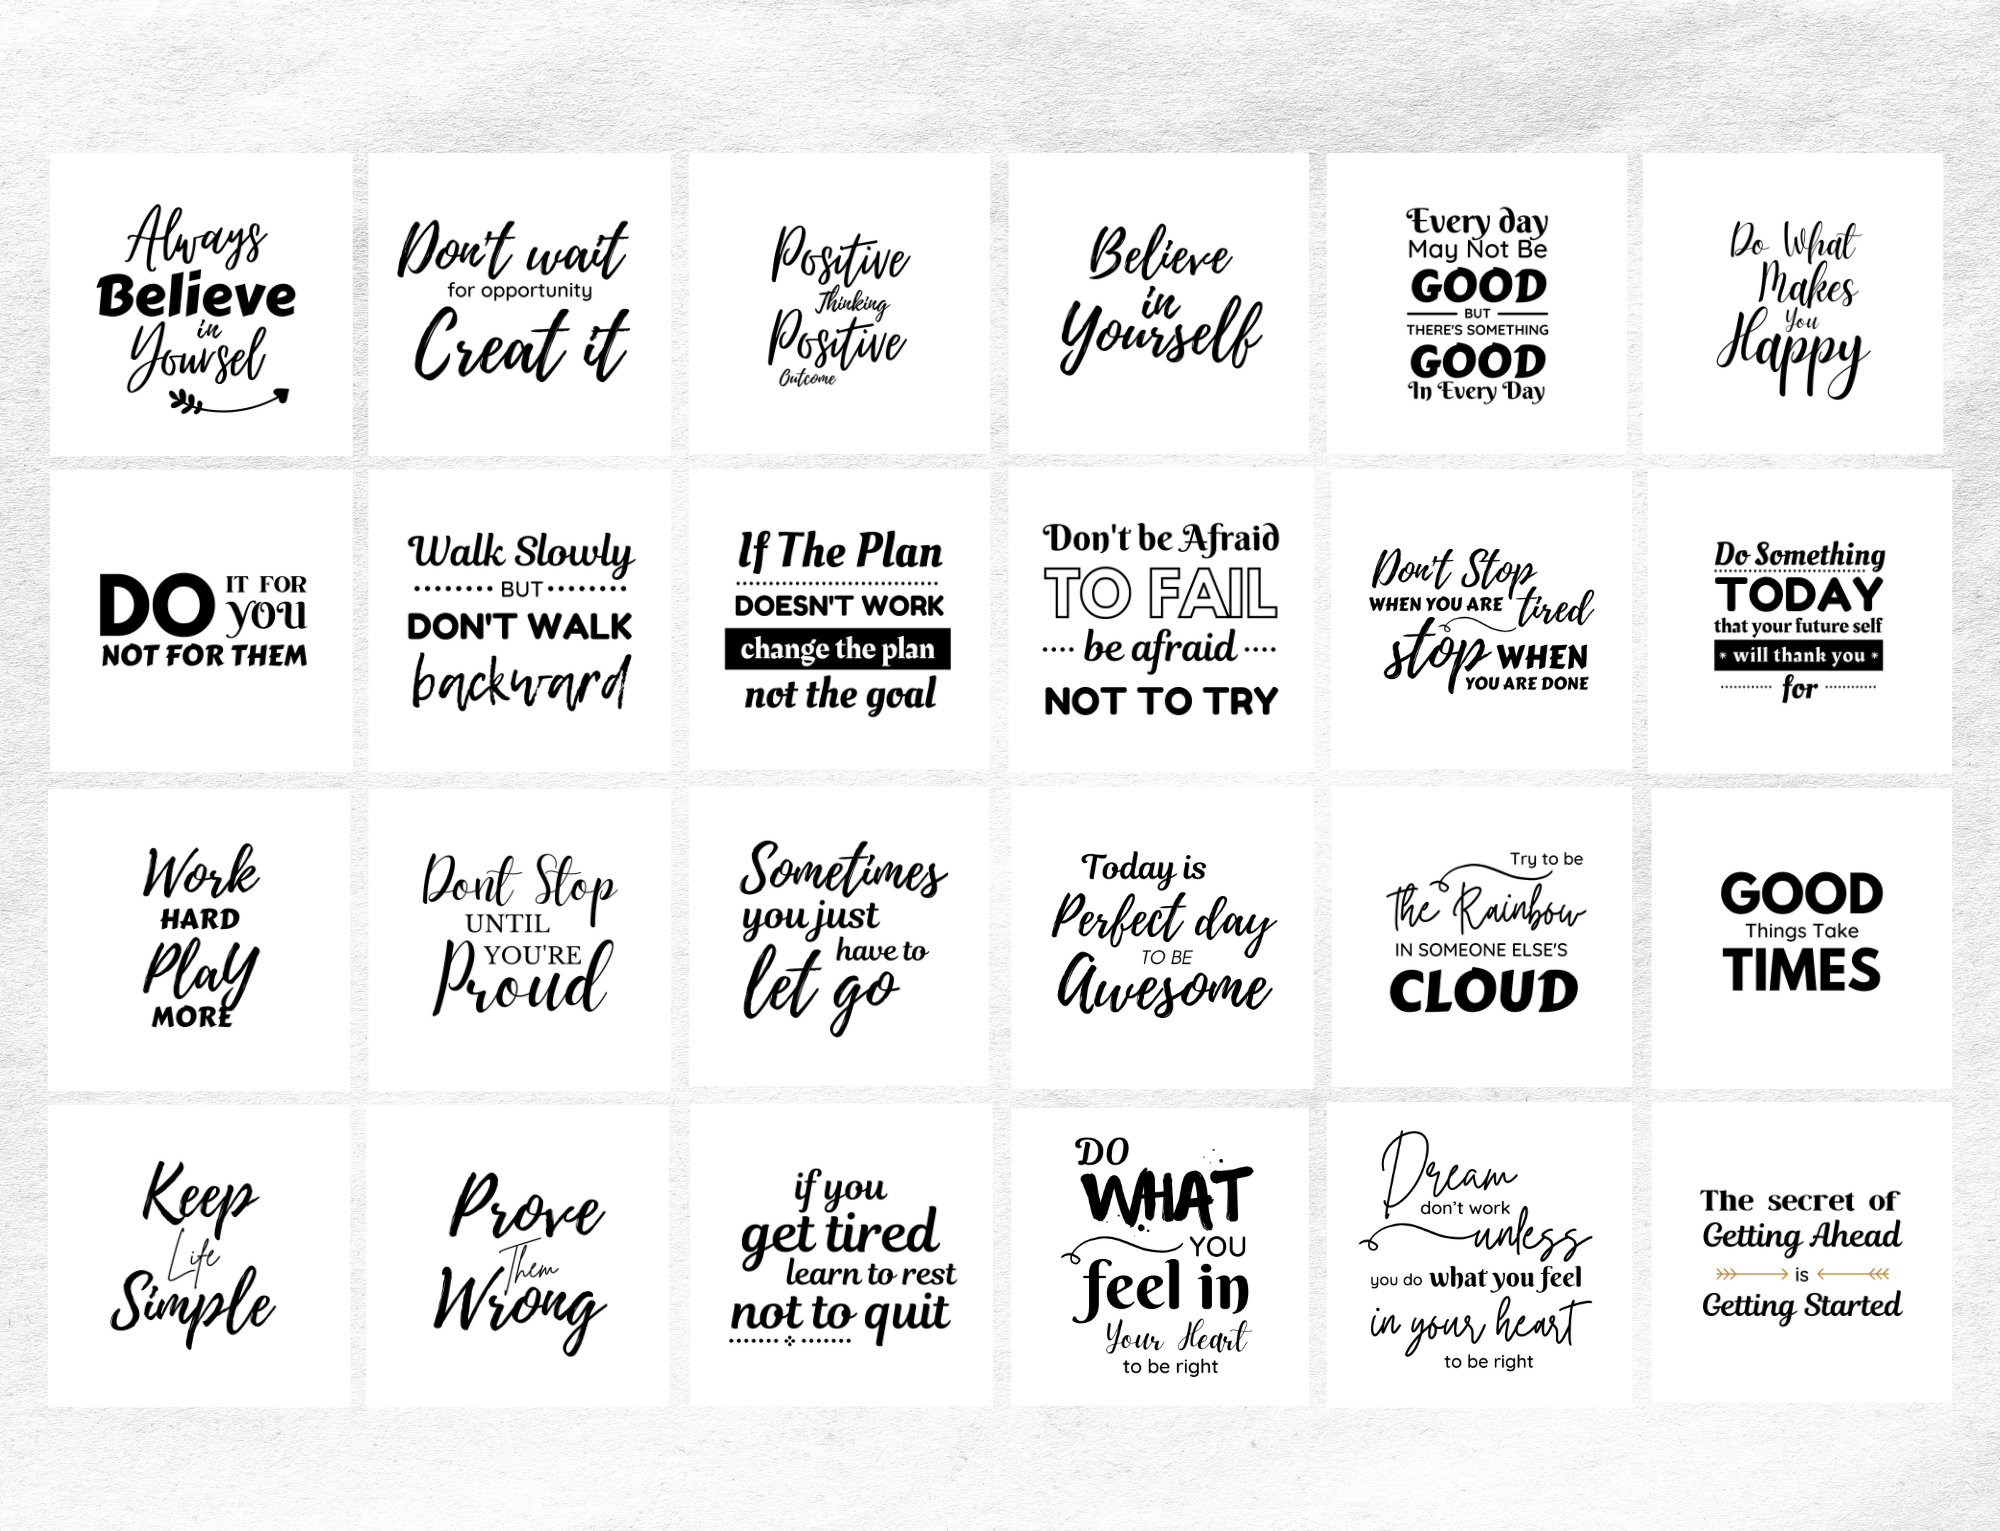 Always
Believe
in
Yoursel
Don't wait
for opportunity
Creat it
Positive
Thinking
Positive
Outcome
Believe
in
Yourself
Every day
May Not Be
GOOD
BUT
THERE'S SOMETHING
GOOD
In Every Day
Do What
Makes
You
Happy
DO IT FOR
YOU
NOT FOR THEM
Walk Slowly
BUT
DON'T WALK
backward
If The Plan
DOESN'T WORK
change the plan
not the goal
Don't be Afraid
TO FAIL
be afraid
NOT TO TRY
Don't Stop
WHEN YOU ARE tired
stop WHEN
YOU ARE DONE
Do Something
TODAY
that your future self
* will thank you *
for
Work
HARD
Play
MORE
Dont Stop
UNTIL
YOU'RE
Proud
Sometimes
you just
have to
let go
Today is
Perfect day
TO BE
Awesome
Try to be
The Rainbow
IN SOMEONE ELSE'S
CLOUD
GOOD
Things Take
TIMES
Keep
Life
Simple
Prove
Them
Wrong
if you
get tired
learn to rest
not to quit
DO
WHAT
YOU
feel in
Your Heart
to be right
Dream
don't work
unless
you do what you feel
in your heart
to be right
The secret of
Getting Ahead
is
Getting Started